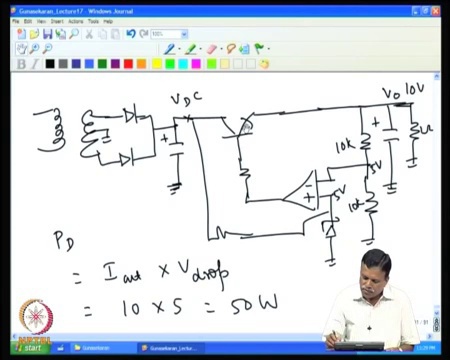 Gunasekaran_Lecture17 - Windows Journal
File Edit View Insert Actions Tools Help
100%
B I
V DC
V0 10V
+
+
10k
5V
-
5V
+
10k
PD
= Iout × Vdrop
= 10 × 5 = 50W
NPTEL
start
Gunasekaran
Gunasekaran_Lectu...